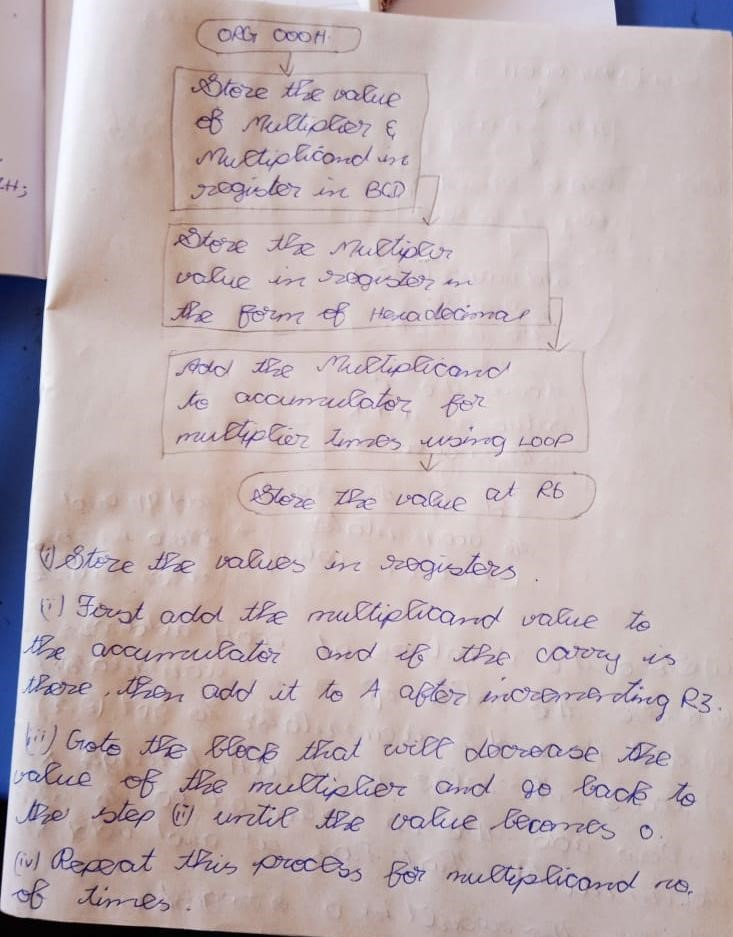 ORG 000H.
Store the value
of Multiplier &
Multiplicand in
register in BCD
2H;
Store the Multiplier
value in register in
the form of Hexadecimal
Add the Multiplicand
to accumulator for
multiplier times using LOOP
Store the value at R6
(i) Store the values in registers.
(ii) First add the multiplicand value to
the accumulator and if the carry is
there, then add it to A after incrementing R3.
(iii) Goto the block that will decrease the
value of the multiplier and go back to
the step (ii) until the value becomes 0.
(iv) Repeat this process for multiplicand no.
of times.